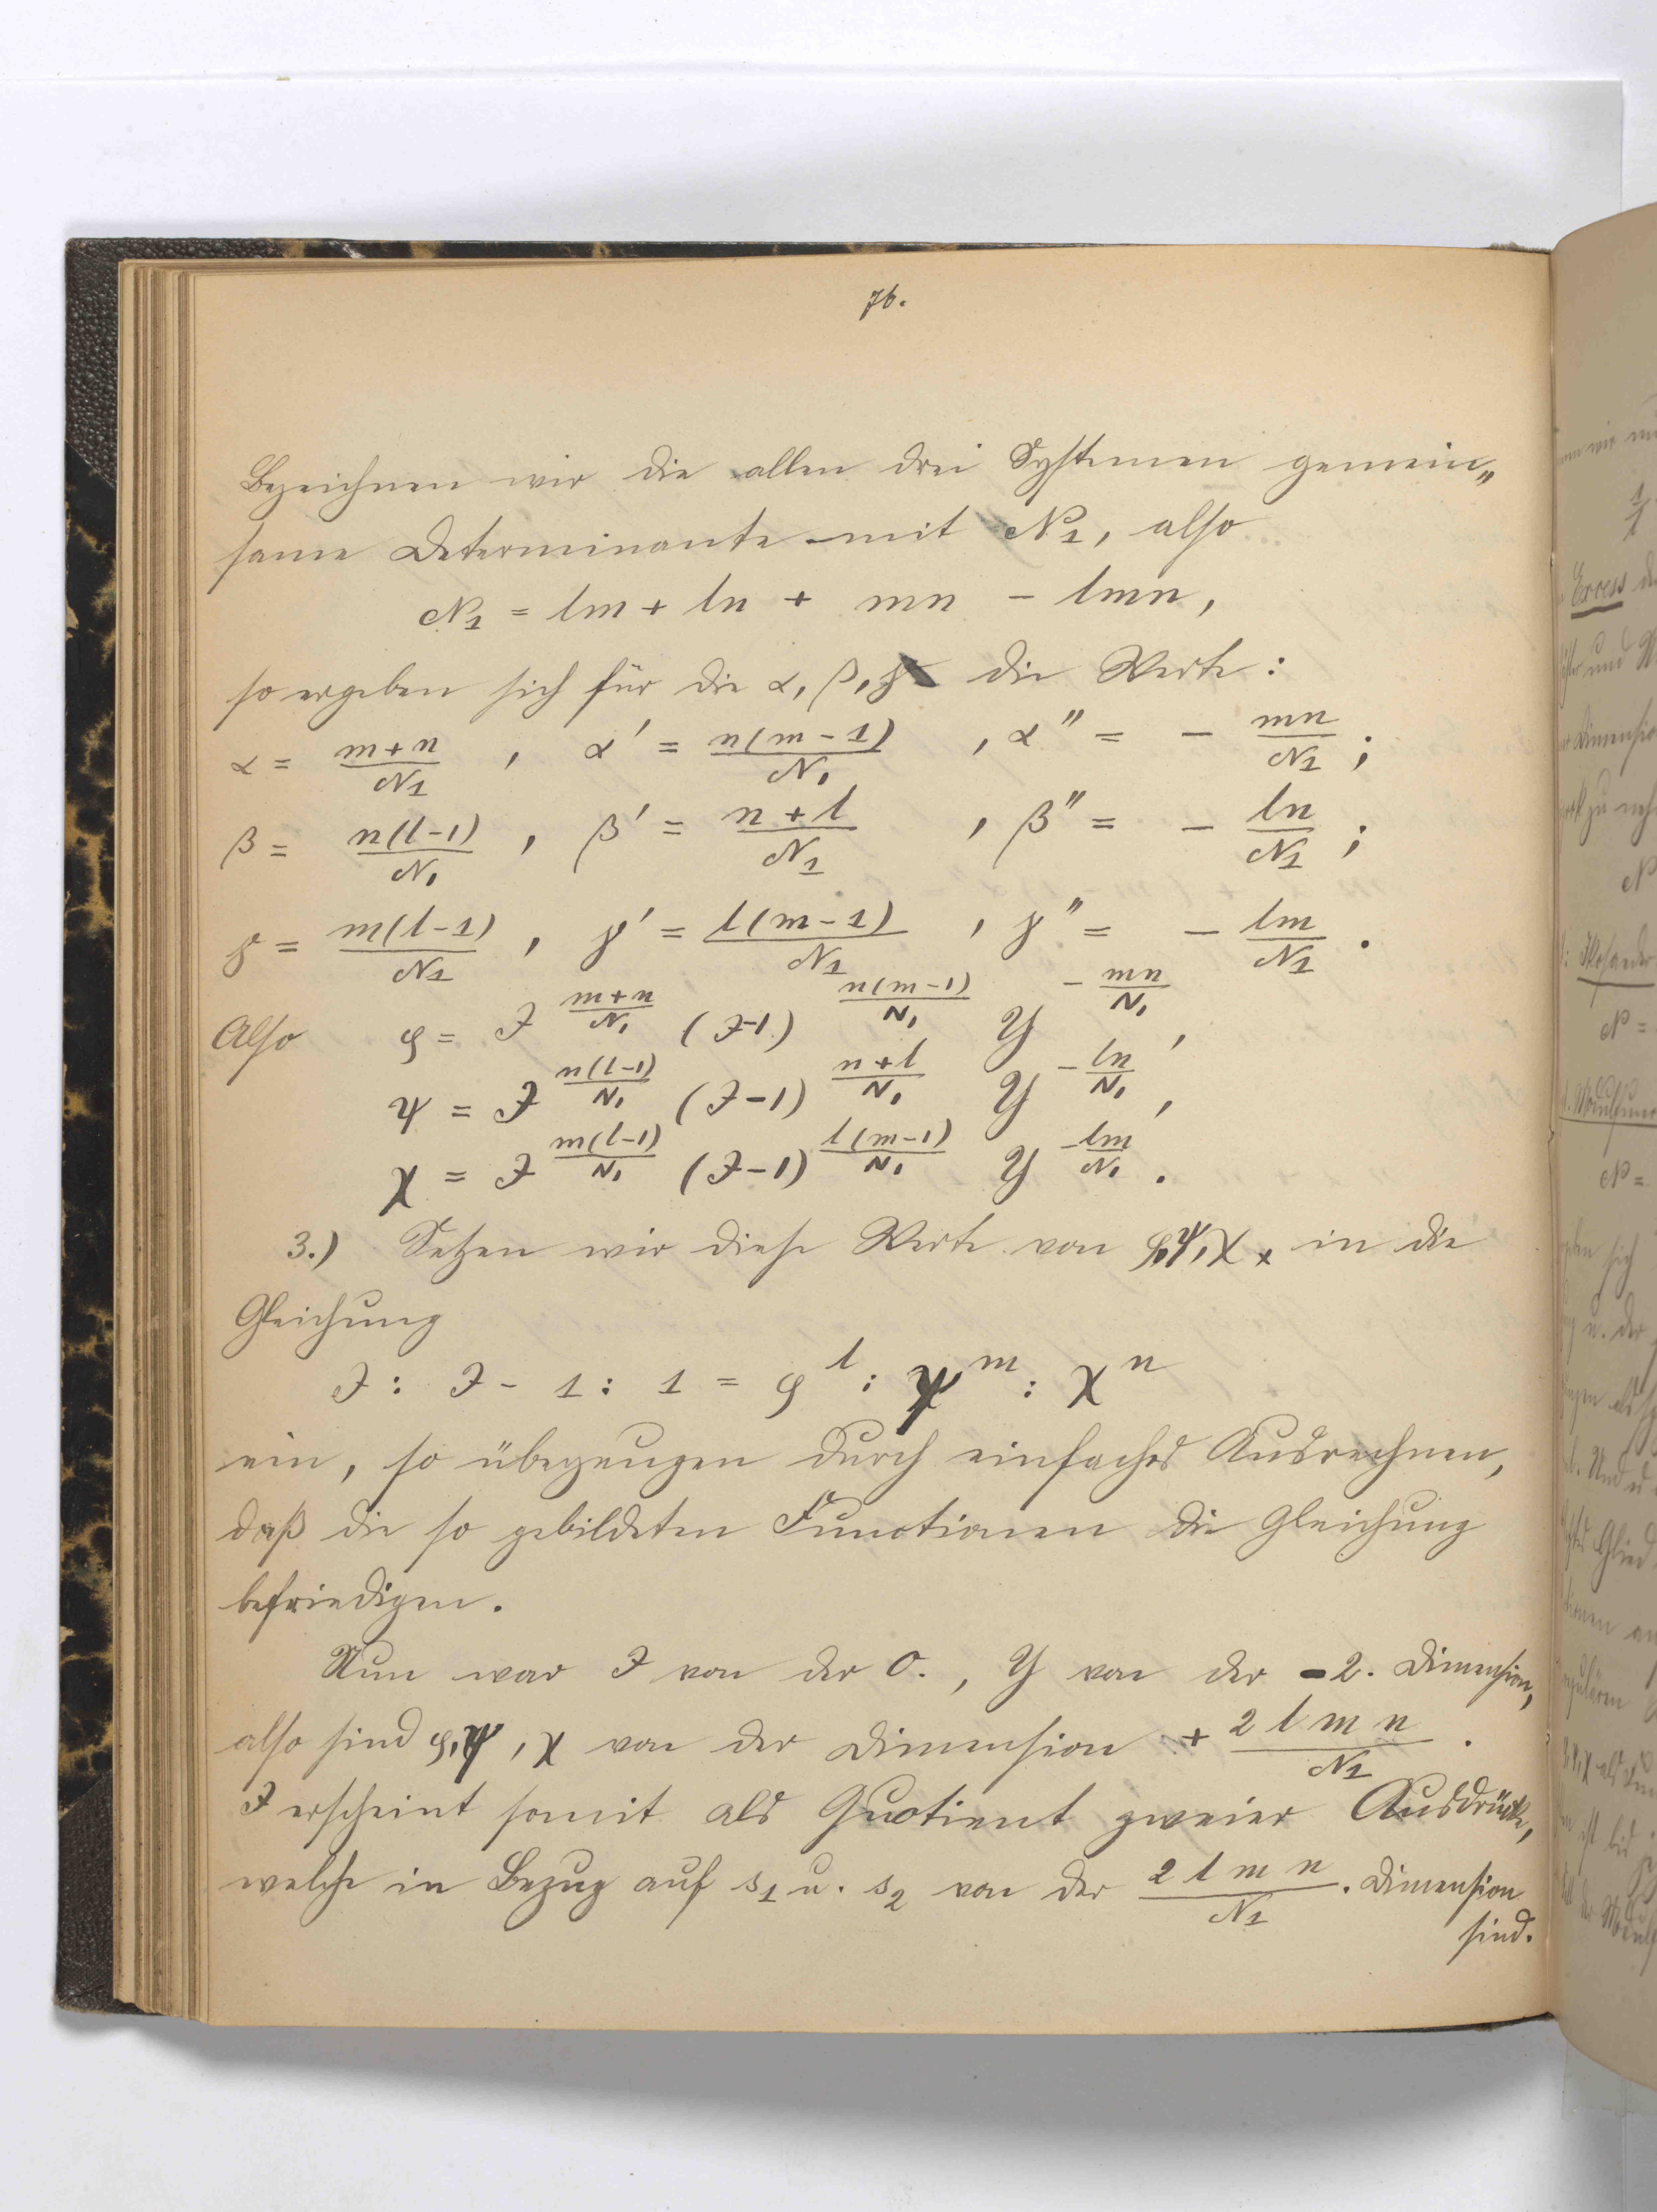 76.
Bezeichnen wir die allen drei Systemen gemein„
same Determinante mit N₁, also
N₁ = lm + ln + mn - lmn,
so ergeben sich für die α, β, γ die Werte:
α = (m+n)/N₁ , α' = n(m-1)/N₁ , α'' = - mn/N₁ ;
β = n(l-1)/N₁ , β' = (n+l)/N₁ , β'' = - ln/N₁ ;
γ = m(l-1)/N₁ , γ' = l(m-1)/N₁ , γ'' = - lm/N₁ .
Also φ = J^((m+n)/N₁) (J-1)^(n(m-1)/N₁) Y^(-mn/N₁) ,
ψ = J^(n(l-1)/N₁) (J-1)^((n+l)/N₁) Y^(-ln/N₁) ,
χ = J^(m(l-1)/N₁) (J-1)^(l(m-1)/N₁) Y^(-lm/N₁) .
3.) Setzen wir diese Werte von φ, ψ, χ in die
Gleichung
J : J - 1 : 1 = φ^l : ψ^m : χ^n
ein, so übezeugen durch einfaches Ausrechnen,
daß die so gebildeten Functionen die Gleichung
befriedigen.
Nun war J von der 0. , Y von der -2. Dimension,
also sind φ, ψ, χ von der Dimension + 2lmn/N₁ .
J erscheint somit als Quotient zweier Ausdrücke,
welche in Bezug auf s₁ u. s₂ von der 2lmn/N₁ . Dimension
sind.